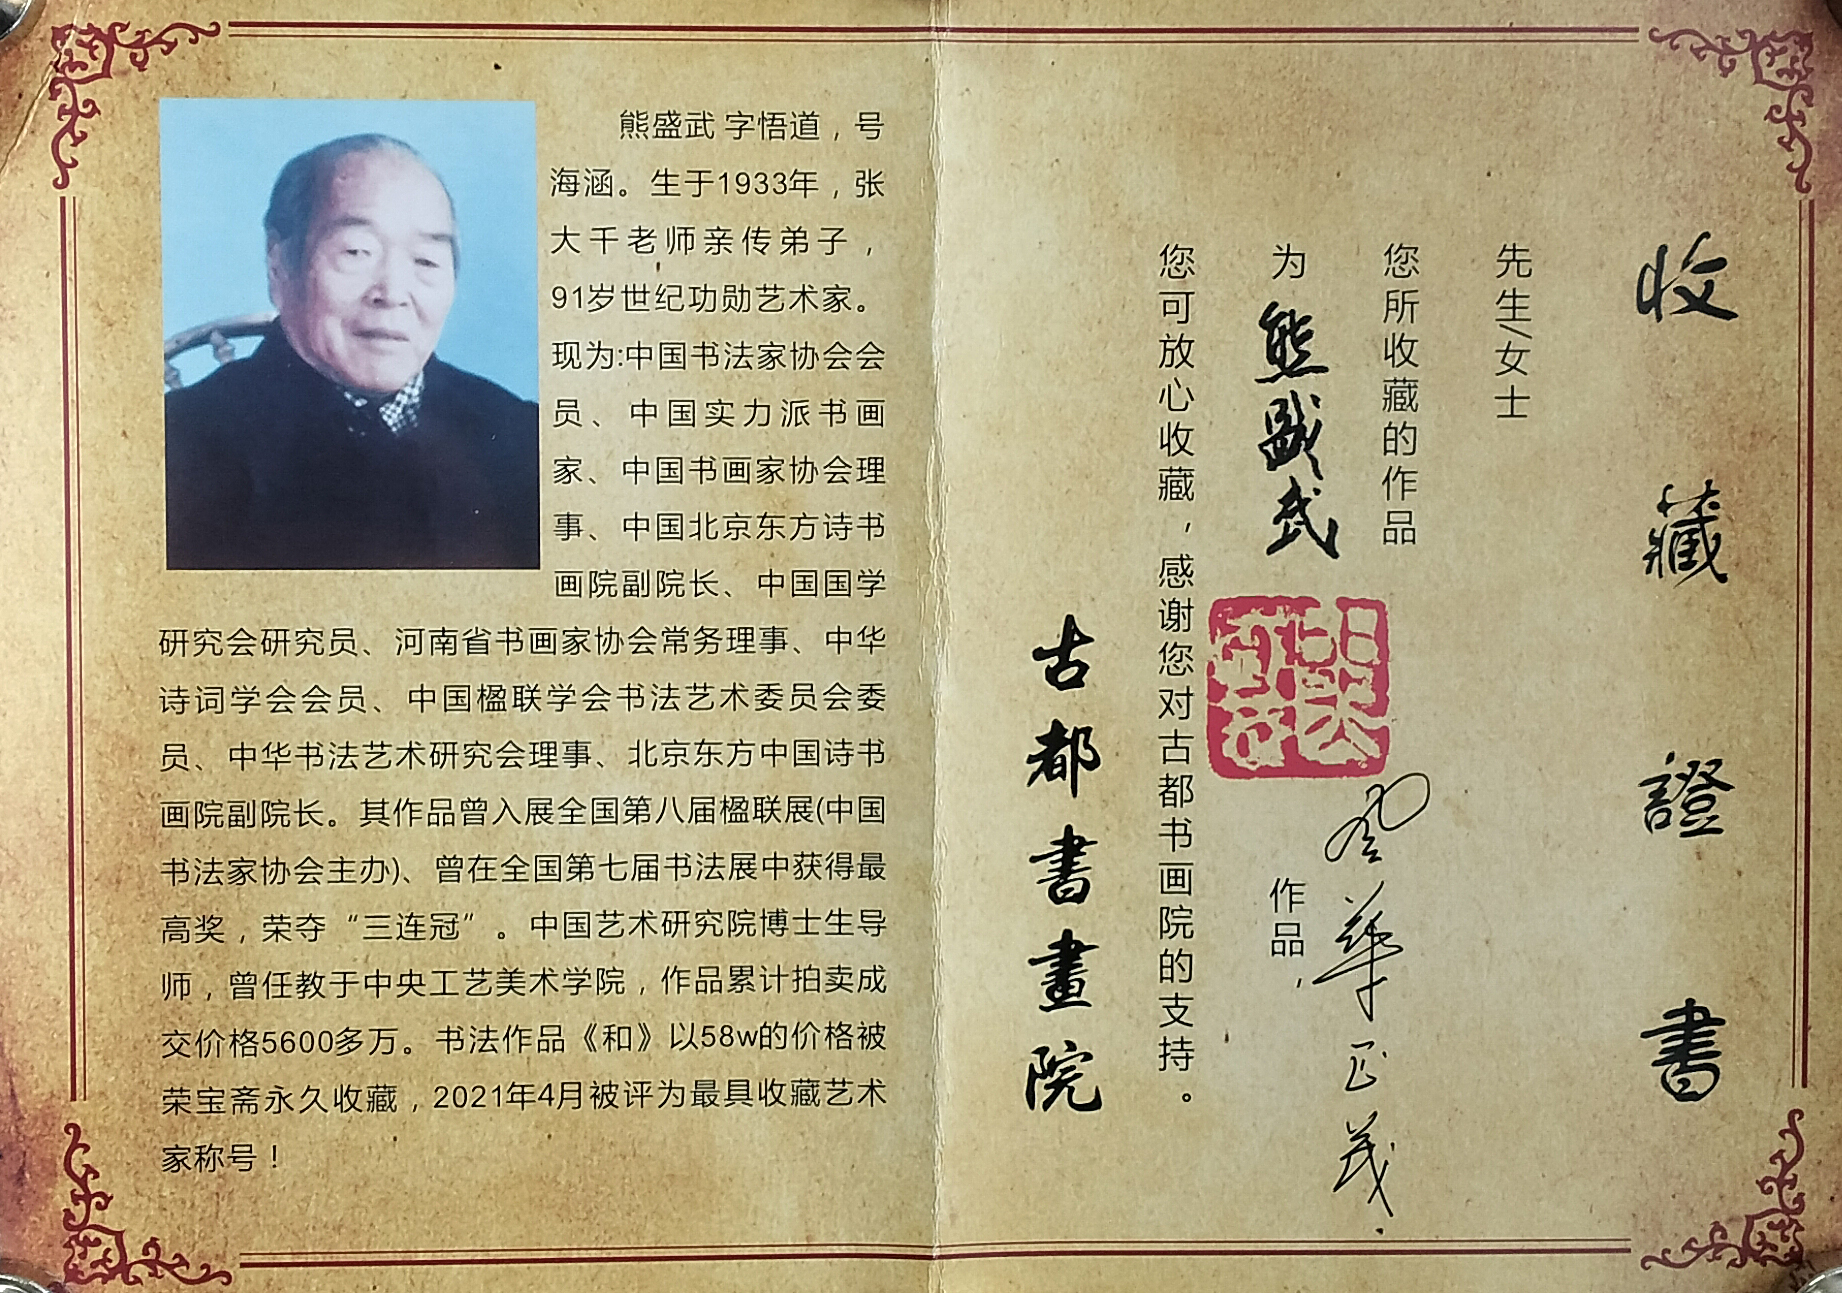 熊盛武 字悟道，号
海涵。生于1933年，张
大千老师亲传弟子，
91岁世纪功勋艺术家。
现为:中国书法家协会会
员、中国实力派书画
家、中国书画家协会理
事、中国北京东方诗书
画院副院长、中国国学
研究会研究员、河南省书画家协会常务理事、中华
诗词学会会员、中国楹联学会书法艺术委员会委
员、中华书法艺术研究会理事、北京东方中国诗书
画院副院长。其作品曾入展全国第八届楹联展(中国
书法家协会主办)、曾在全国第七届书法展中获得最
高奖，荣夺“三连冠”。中国艺术研究院博士生导
师，曾任教于中央工艺美术学院，作品累计拍卖成
交价格5600多万。书法作品《和》以58w的价格被
荣宝斋永久收藏，2021年4月被评为最具收藏艺术
家称号！
收藏證書
先生/女士
您所收藏的作品
为熊盛武作品，
您可放心收藏，感谢您对古都书画院的支持。
古都書畫院